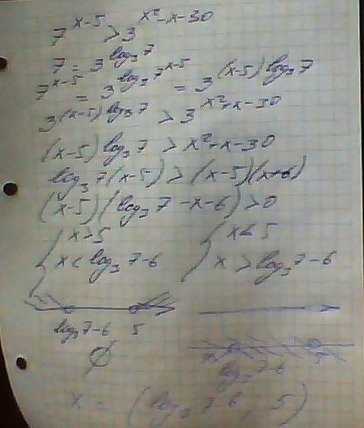 7^{x-5} > 3^{x²-x-30}
7 = 3^{log₃7}
7^{x-5} = 3^{log₃7^{x-5}} = 3^{(x-5)log₃7}
3^{(x-5)log₃7} > 3^{x²+x-30}
(x-5)log₃7 > x²+x-30
log₃7(x-5) > (x-5)(x+6)
(x-5)(log₃7 -x-6) > 0
{ x>5 { x<5
x < log₃7-6 x > log₃7-6
log₃7-6 5
∅ log₃7-6
x = (log₃7-6, 5)